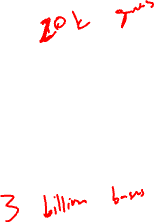 20k genes
3 billion bases